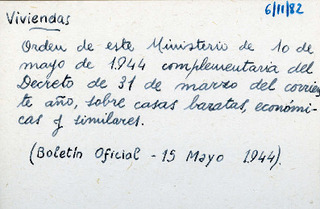 6/11/82
Viviendas
Orden de este Ministerio de 10 de
mayo de 1.944 complementaria del
Decreto de 31 de marzo del corrien
te año, sobre casas baratas, económi-
cas y similares.
(Boletín Oficial - 15 Mayo 1944).